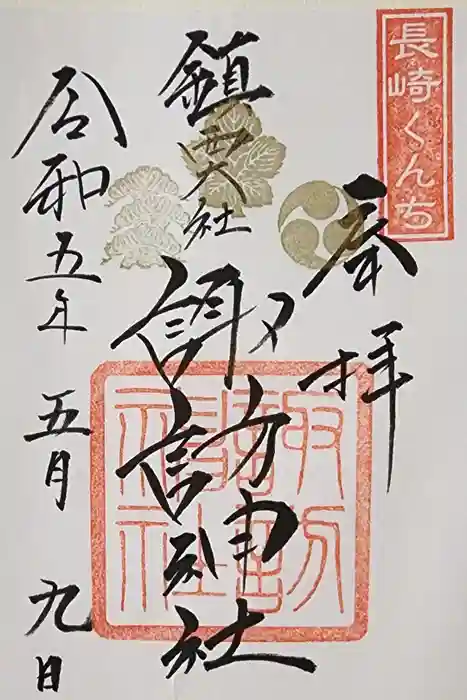 長崎くんち
奉拝
鎮西大社
諏訪神社
諏訪神社
令和五年 五月 九日